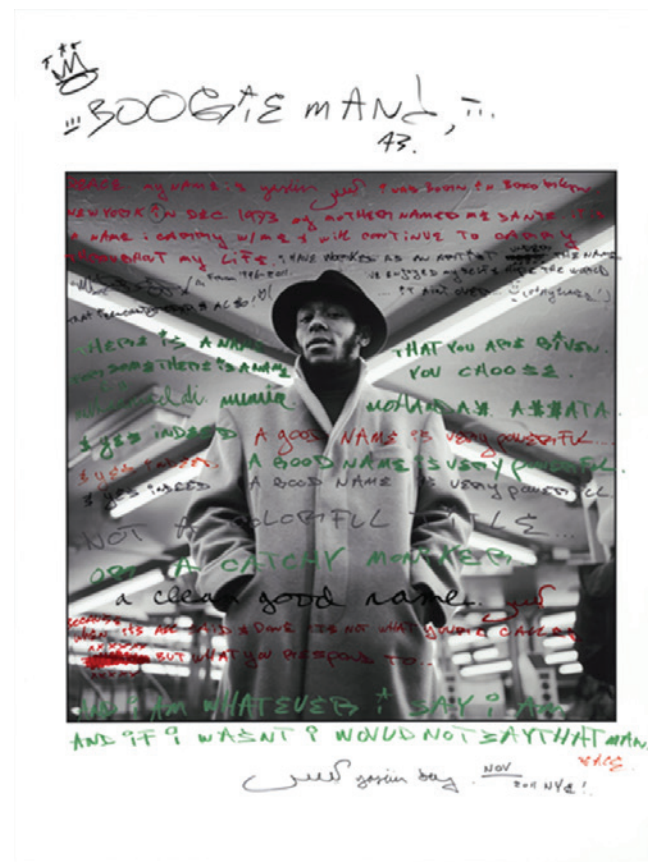 BOOGiE MAN!,
43.
PEACE my NAME is yasiin i WAS BORN iN BOROBKLYN
NEW YORK iN DEC 1973 my MOTHER NAMED ME DANTE. iT iS
A NAME i CARRY W/ME & will CONTINUE TO CARRY
THROUGHOUT my LiFE. i HAVE WORKED AS AN ARTIST UNDER THE NAME
FROM 1996-2011. i'VE ENJOYED MYSELF & THE WORLD
THAT ALSO!
iT AiNT OVER
THERE iS A NAME THAT YOU ARE GiVEN.
AND SOME THERE iS A NAME YOU CHOOSE.
muhammad ali. mumia
& yES iNDEED A gOOD NAME iS VERy POWERFUL...
& yES iNDEED. A GOOD NAME iS VERY POWERFUL.
& yES iNDEED A GOOD NAME iS VERY POWERFUL
NOT A COLORFULL TiTLE...
OR A CATCHY MONiKER
a clean good name.
BECAUSE
when iTS ALL SAiD & DONE iTS NOT WHAT YOU'RE CALLED
BUT WHAT you RESPOND TO...
AND i AM WHATEVER i SAY i AM
AND iF i WASNT i WOULD NOT SAY THAT MAN.
yasiin bey. NOV
2011 NYC!